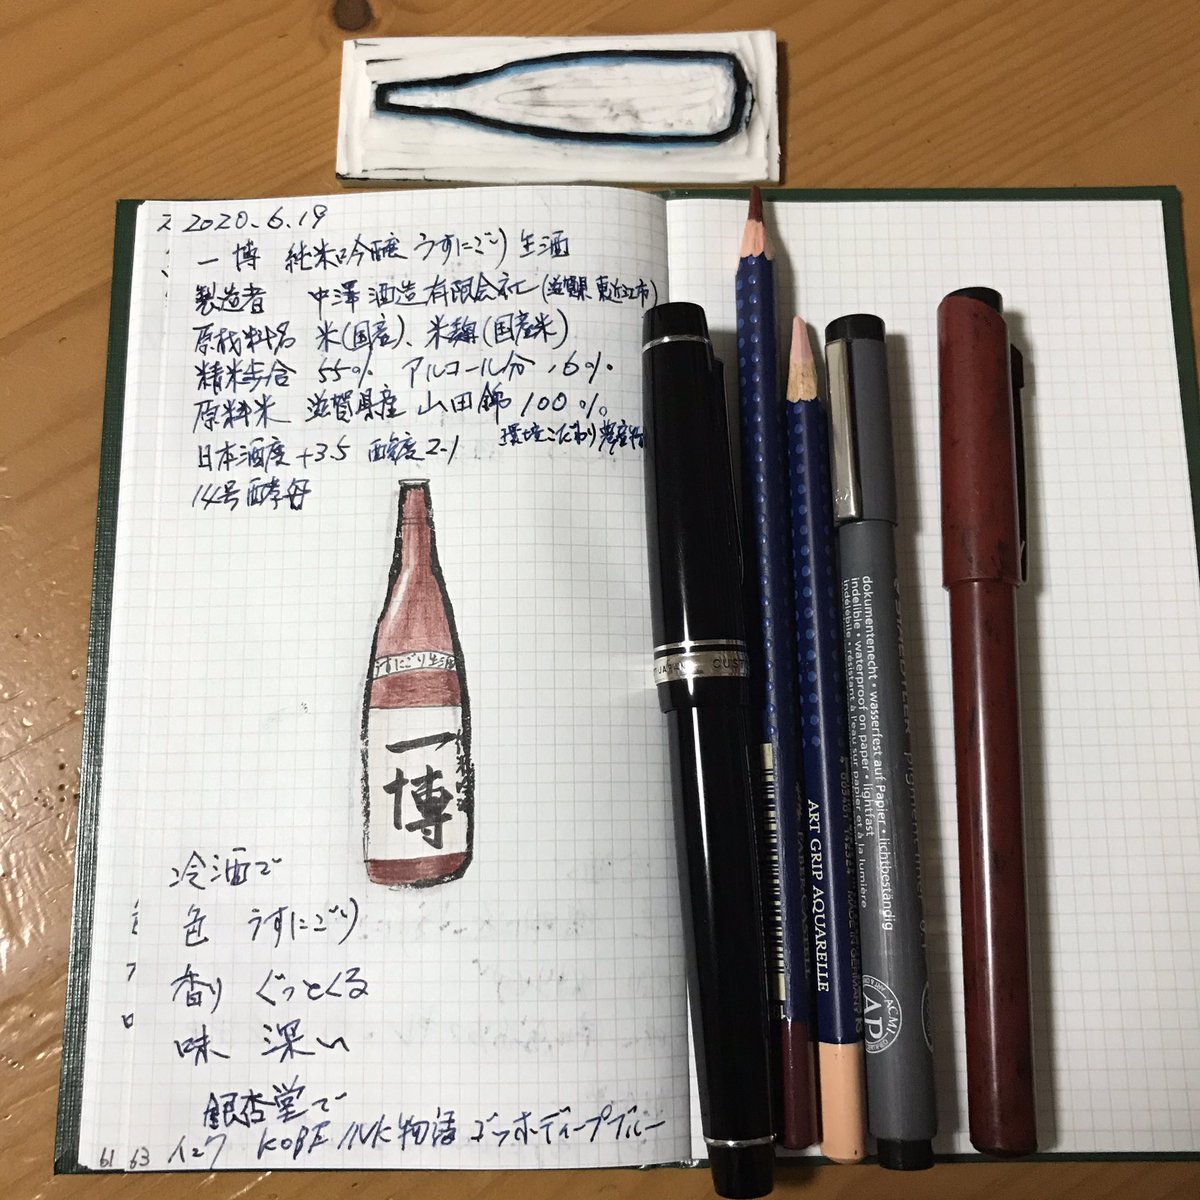 2020.6.19
一博 純米吟醸 うすにごり 生酒
製造者 中澤酒造有限会社(滋賀県東近江市)
原材料名 米(国産)、米麹(国産米)
精米歩合 55% アルコール分 16%
原料米 滋賀県産 山田錦 100%
環境こだわり農産物
日本酒度+3.5 酸度2.1
14号酵母
うすにごり生酒
一博
冷酒で
色 うすにごり
香り ぐっとくる
味 深い
銀杏堂で
インク KOBE INK物語 ゴッホディープブルー
61 63
JAPAN
ART GRIP AQUARELLE
FABER-CASTELL
STAEDTLER pigment liner
dokumentenecht • wasserfest auf Papier • lichtbeständig
indelible • waterproof on paper • lightfast
indélébile • résistant à l'eau sur papier et à la lumière
MADE IN GERMANY
ACMI
AP